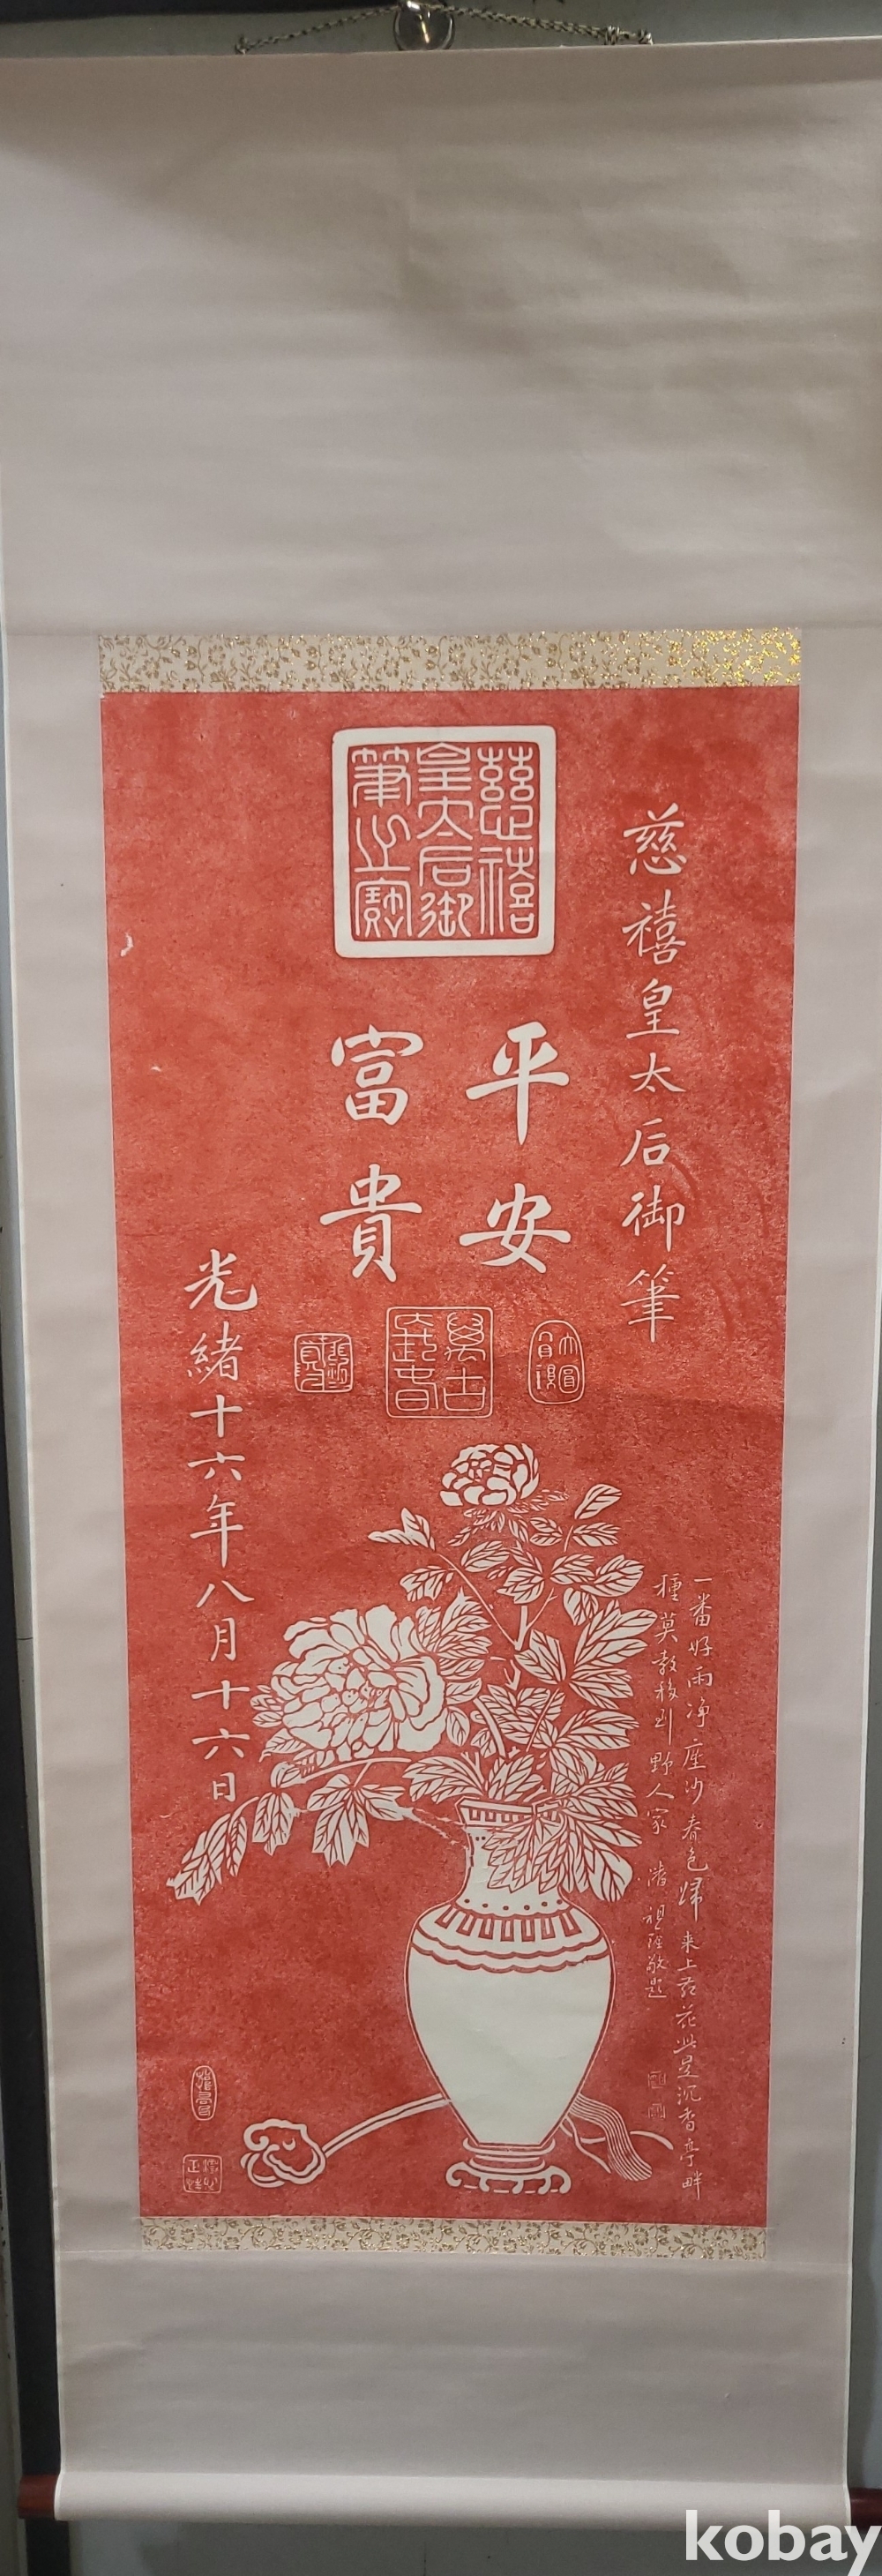 慈禧皇太后御筆之寶
慈禧皇太后御筆
平安
富貴
萬古
光緒十六年八月十六日
一番好雨淨塵沙春色歸來上苑花此是沉香亭畔
種莫教移到野人家 潘祖蔭敬題
kobay